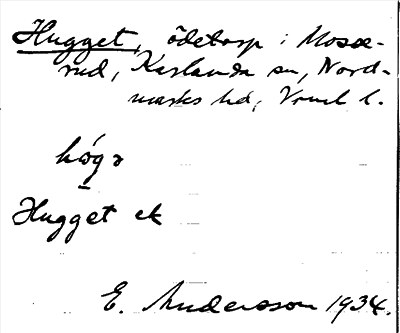 Hugget, ödetorp i Mosse-
rud, Karlanda sn, Nord-
marks hd, Vrml l.
hó̱gə
Hugget ek
E. Andersson 1934.